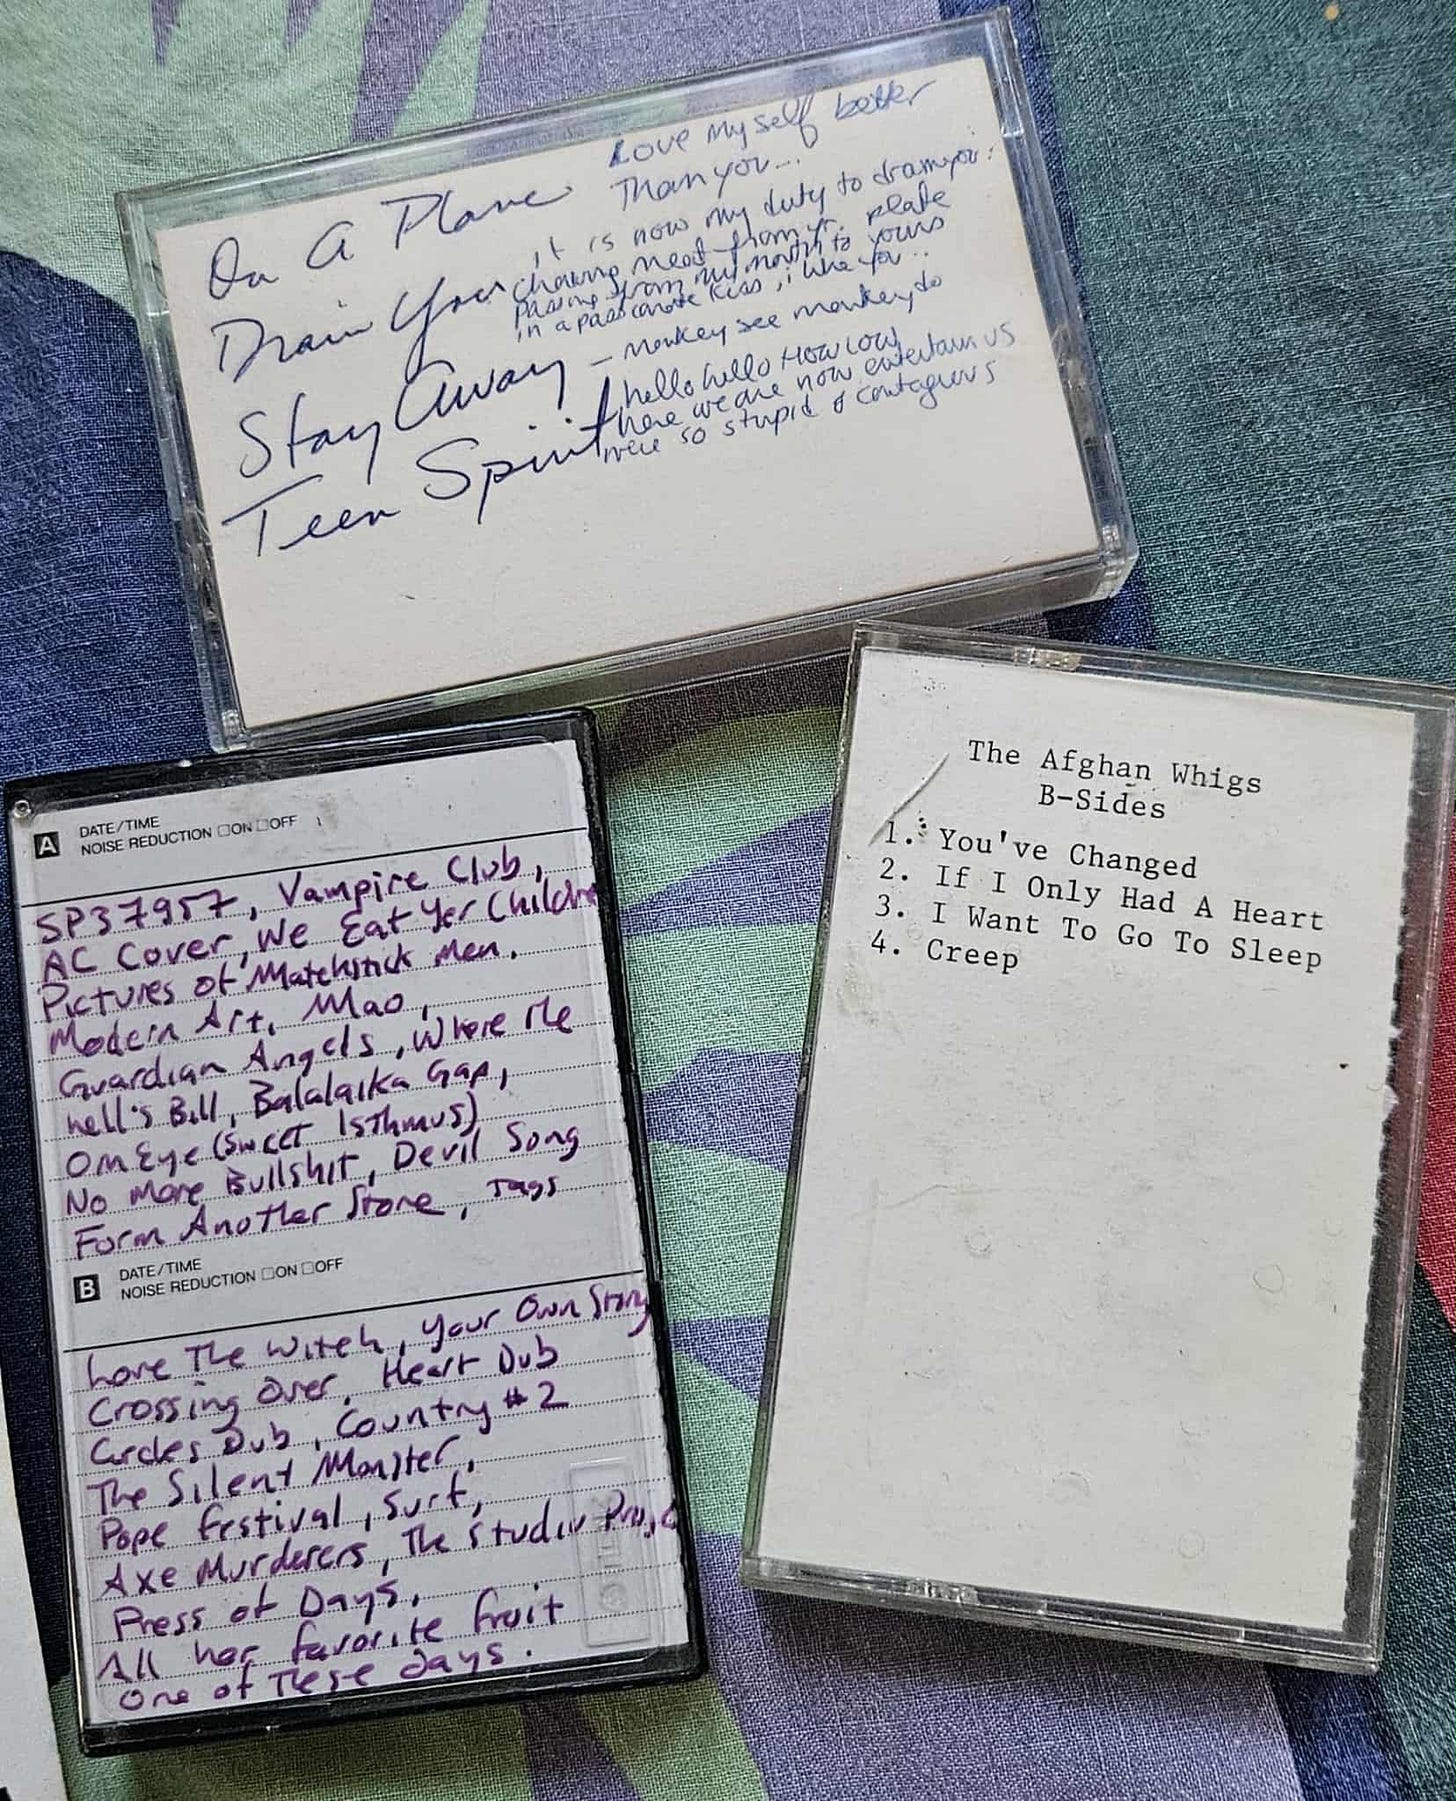 On A Plane
Love myself better
Than you...
Drain You
it is now my duty to drain you.
chewing meat from yr. plate
passing from my mouth to yours
in a passionate kiss, i like you..
Stay Away - monkey see monkey do
Teen Spirit
hello hello How low
here we are now entertain us
were so stupid & contagious
A
DATE/TIME
NOISE REDUCTION □ON □OFF
SP37957, Vampire Club,
AC Cover, We Eat Yer Childre
Pictures of Matchstick Men.
Modern Art, Mao,
Guardian Angels, Where the
hell's Bill, Balalaika Gap,
Om Eye (Sweet Isthmus)
No More Bullshit, Devil Song
Form Another Stone, Tags
B
DATE/TIME
NOISE REDUCTION □ON □OFF
Love The Witch, Your Own Story
Crossing Over, Heart Dub
Circles Dub, Country #2
The Silent Monster,
Pope Festival, Surf,
Axe Murderers, The Studio
Press of Days,
All her favorite fruit
One of These days.
The Afghan Whigs
B-Sides
1. You've Changed
2. If I Only Had A Heart
3. I Want To Go To Sleep
4. Creep